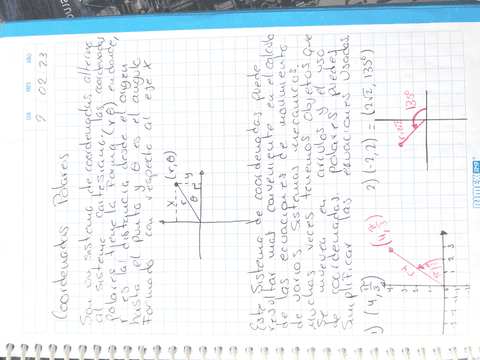 DIA MES AÑO
9 02 23
Coordenadas Polares
Son un sistema de coordenadas alterno
al sistema cartesiano. las coordenadas
Polares tiene la forma (r,θ) endonde,
r es la distancia desde el origen
hasta el punto y θ es el angulo
formado con respecto al eje X
x
(r,θ)
r
y
θ
Este Sistema de coordenadas puede
resultar mas conveniente en el calculo
de las ecuaciones de movimiento
de varios sistemas mecanicos.
Muchas veces tenemos objetos que
se mueven en circulos y el uso
de coordenadas Polares puedes
simplificar las ecuaciones usadas
1) (4, π/3)
2) (-2,2) = (2√2, 135°)
(4, π/3)
4
π/3
1 2 3
r=2√2
135°